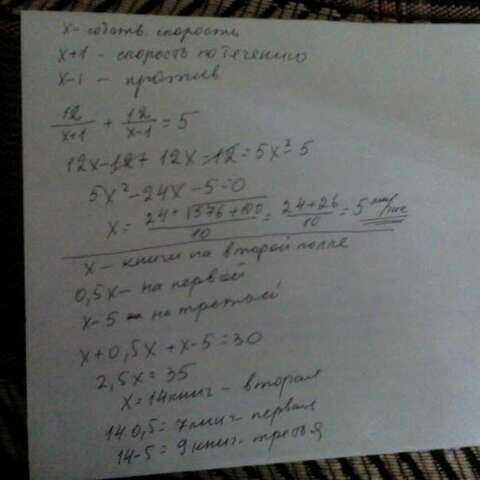 x - собств. скорость
x+1 - скорость по течению
x-1 - против
12/(x+1) + 12/(x-1) = 5
12x-12+12x=12=5x²-5
5x²-24x-5=0
x = (24+√(576+100))/10 = (24+26)/10 = 5 км/час
x - книги на второй полке
0,5x - на первой
x-5 - на третьей
x+0,5x+x-5=30
2,5x=35
x=14 книг - вторая
14·0,5=7 книг - первая
14-5=9 книг - третья